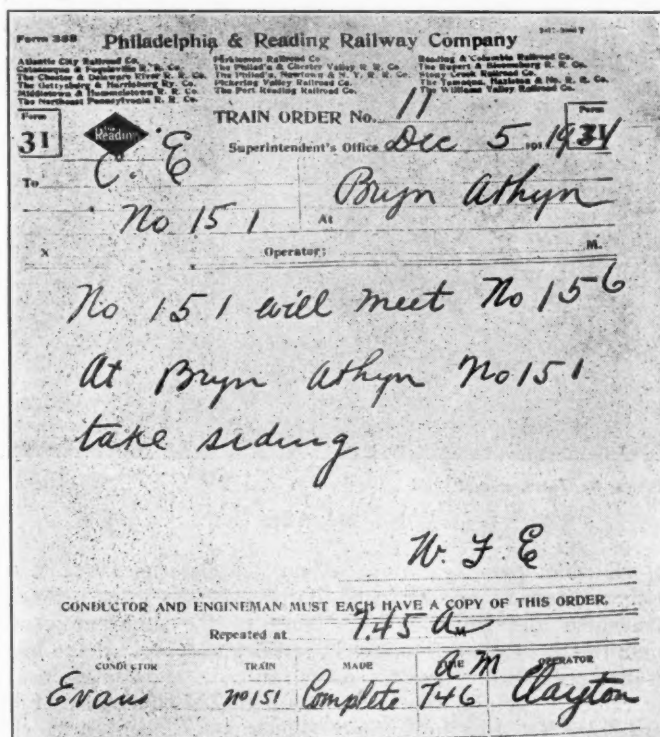 Form 38B Philadelphia & Reading Railway Company
Atlantic City Railroad Co.
Catasauqua & Fogelsville R. R. Co.
The Chester & Delaware River R. R. Co.
The Gettysburg & Harrisburg Ry. Co.
Middletown & Hummelstown R. R. Co.
The Northeast Pennsylvania R. R. Co.
Perkiomen Railroad Co
The Philad'a & Chester Valley R. R. Co.
The Philad'a, Newtown & N. Y. R. R. Co.
Pickering Valley Railroad Co.
The Port Reading Railroad Co.
Reading & Columbia Railroad Co.
The Rupert & Bloomsburg R. R. Co.
Stony Creek Railroad Co.
The Tamaqua, Hazleton & No. R. R. Co.
The Williams Valley Railroad Co.
Form 31
Reading
TRAIN ORDER No. 11
Form
Superintendent's Office Dec 5 191
To C. & E
No 151 At Bryn Athyn
X Operator; M.
No 151 will meet No 156
At Bryn Athyn No 151
take siding
W. F. E
CONDUCTOR AND ENGINEMAN MUST EACH HAVE A COPY OF THIS ORDER.
Repeated at 7.45 AM
CONDUCTOR TRAIN MADE TIME OPERATOR
AM
Evans No 151 Complete 746 Clayton